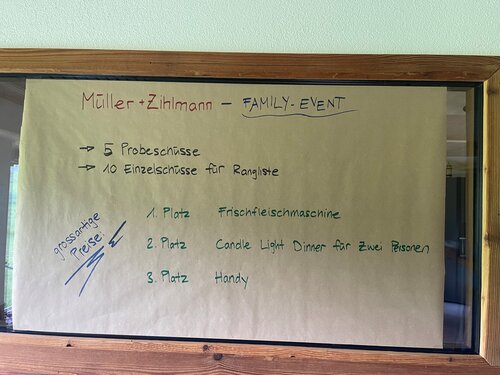 Müller + Zihlmann – FAMILY-EVENT
→ 5 Probeschüsse
→ 10 Einzelschüsse für Rangliste
grossartige Preise:
1. Platz Frischfleischmaschine
2. Platz Candle Light Dinner für Zwei Personen
3. Platz Handy